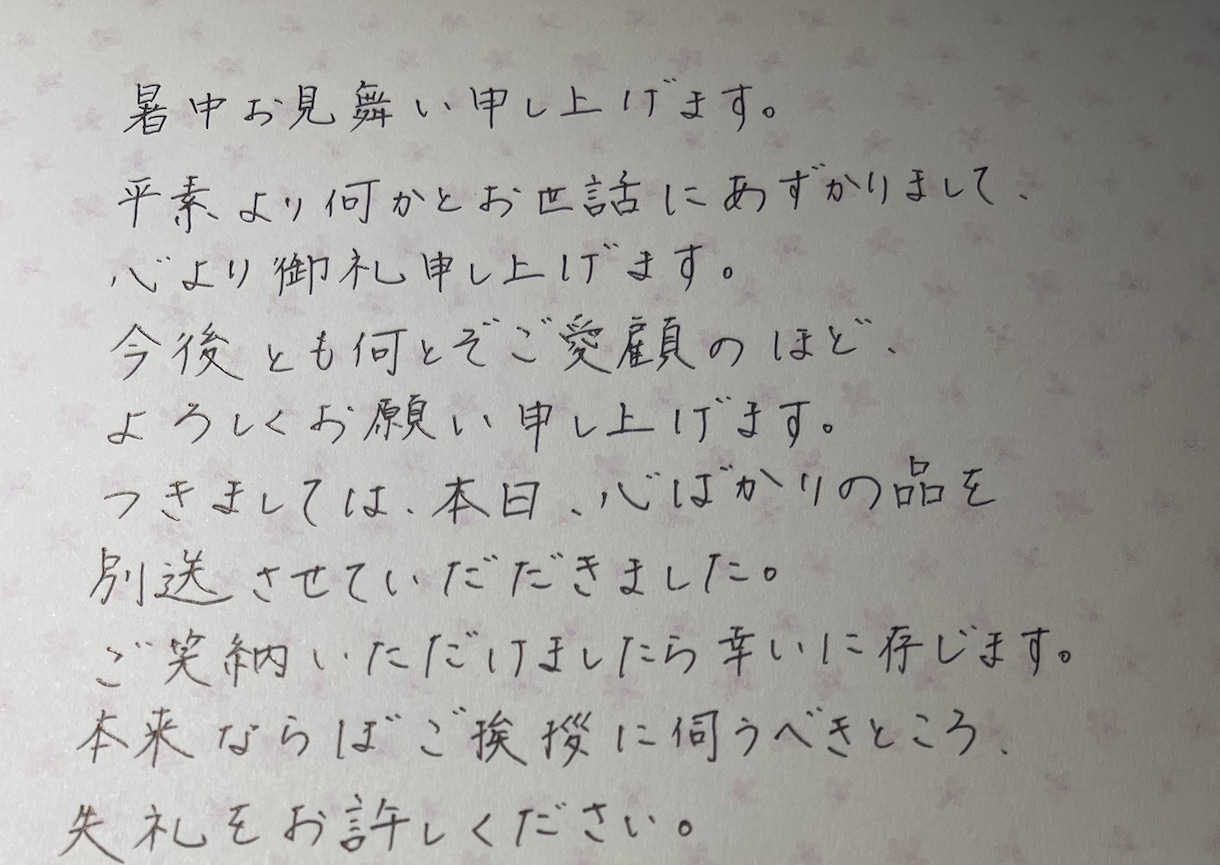 暑中お見舞い申し上げます。
平素より何かとお世話にあずかりまして、
心より御礼申し上げます。
今後とも何とぞご愛顧のほど、
よろしくお願い申し上げます。
つきましては、本日、心ばかりの品を
別送させていだだきました。
ご笑納いただけましたら幸いに存じます。
本来ならばご挨拶に伺うべきところ、
失礼をお許しください。